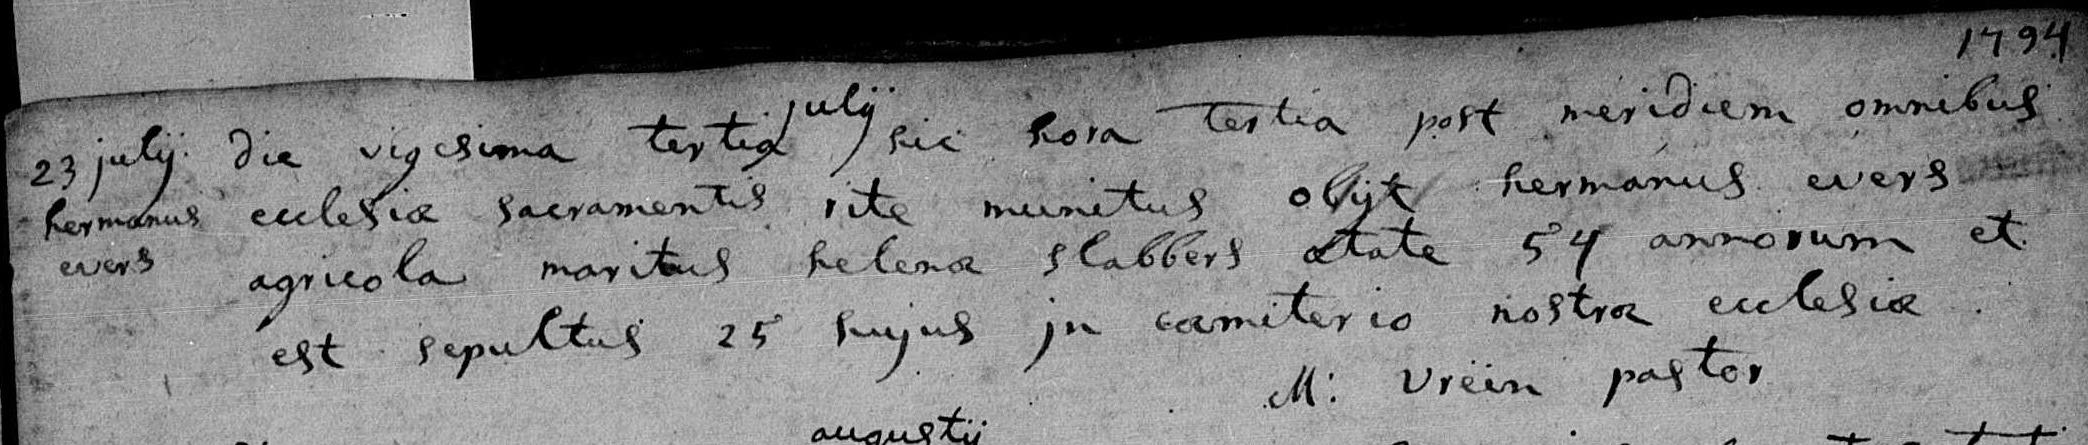 1794
23 julij. die vigesima tertia julij hic hora tertia post meridiem omnibus
hermanus ecclesiæ sacramentis rite munitus obijt hermanus evers
evers agricola maritus helenæ slabbers ætate 54 annorum et
est sepultus 25 hujus jn cœmiterio nostræ ecclesiæ.
M: Vreën pastor
augustij